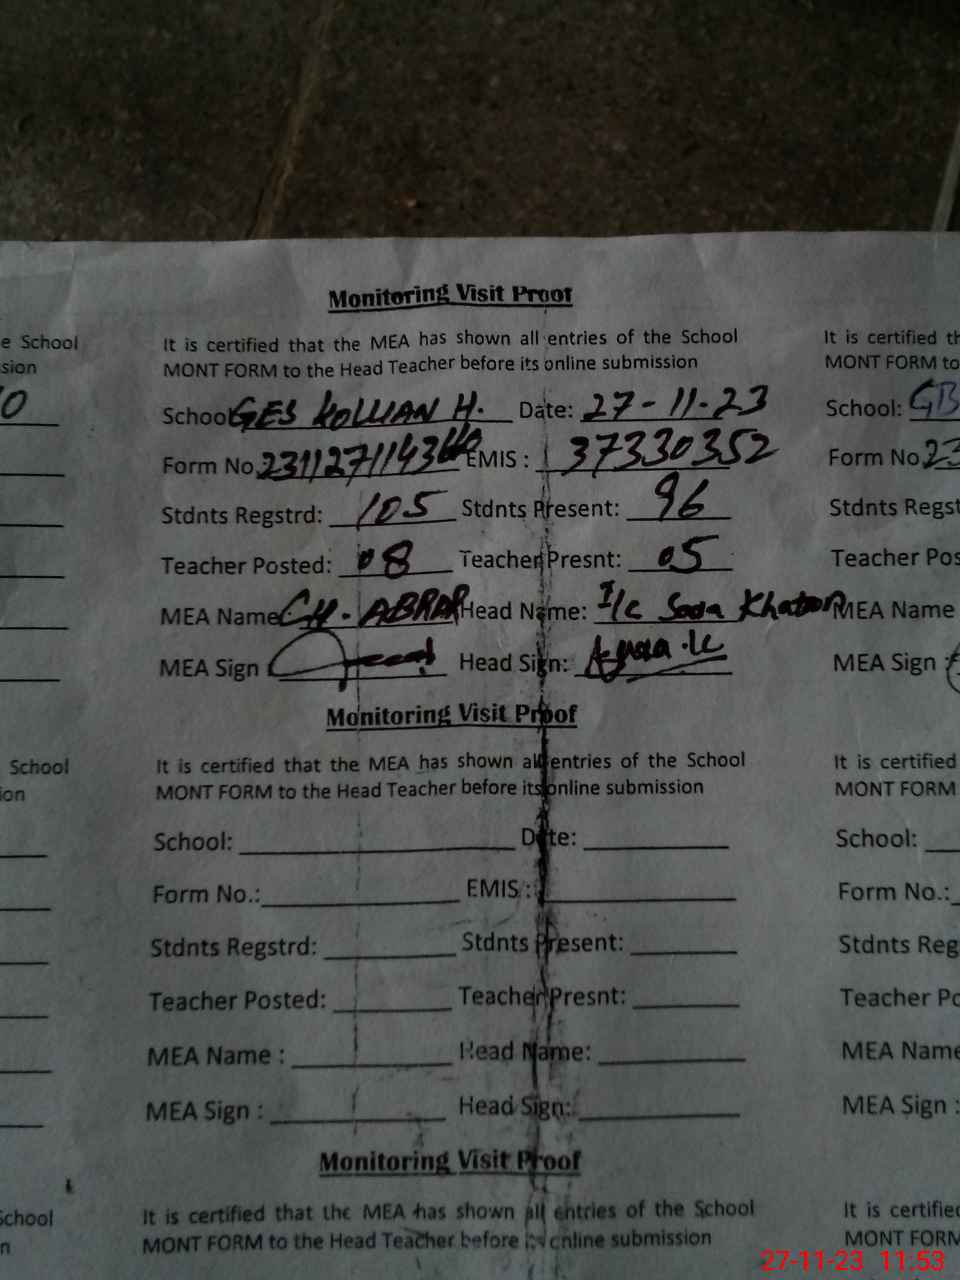 Monitoring Visit Proof
e School
It is certified that the MEA has shown all entries of the School
It is certified th
sion
MONT FORM to the Head Teacher before its online submission
MONT FORM to
0
School GES KOLLIAN H. Date: 27-11-23
School: GB
Form No 23112711434 EMIS : 37330352
Form No 23
Stdnts Regstrd: 105 Stdnts Present: 96
Stdnts Regst
Teacher Posted: 08 Teacher Presnt: 05
Teacher Pos
MEA Name CH. ABRAR Head Name: I/c Sada Khatoon
MEA Name
MEA Sign Head Sign:
MEA Sign :
Monitoring Visit Proof
School
It is certified that the MEA has shown all entries of the School
It is certified
ion
MONT FORM to the Head Teacher before its online submission
MONT FORM
School: Date:
School:
Form No.: EMIS :
Form No.:
Stdnts Regstrd: Stdnts Present:
Stdnts Reg
Teacher Posted: Teacher Presnt:
Teacher Po
MEA Name : Head Name:
MEA Name
MEA Sign : Head Sign:
MEA Sign :
Monitoring Visit Proof
School
It is certified that the MEA has shown all entries of the School
It is certified
n
MONT FORM to the Head Teacher before its online submission
MONT FORM
27-11-23 11:53